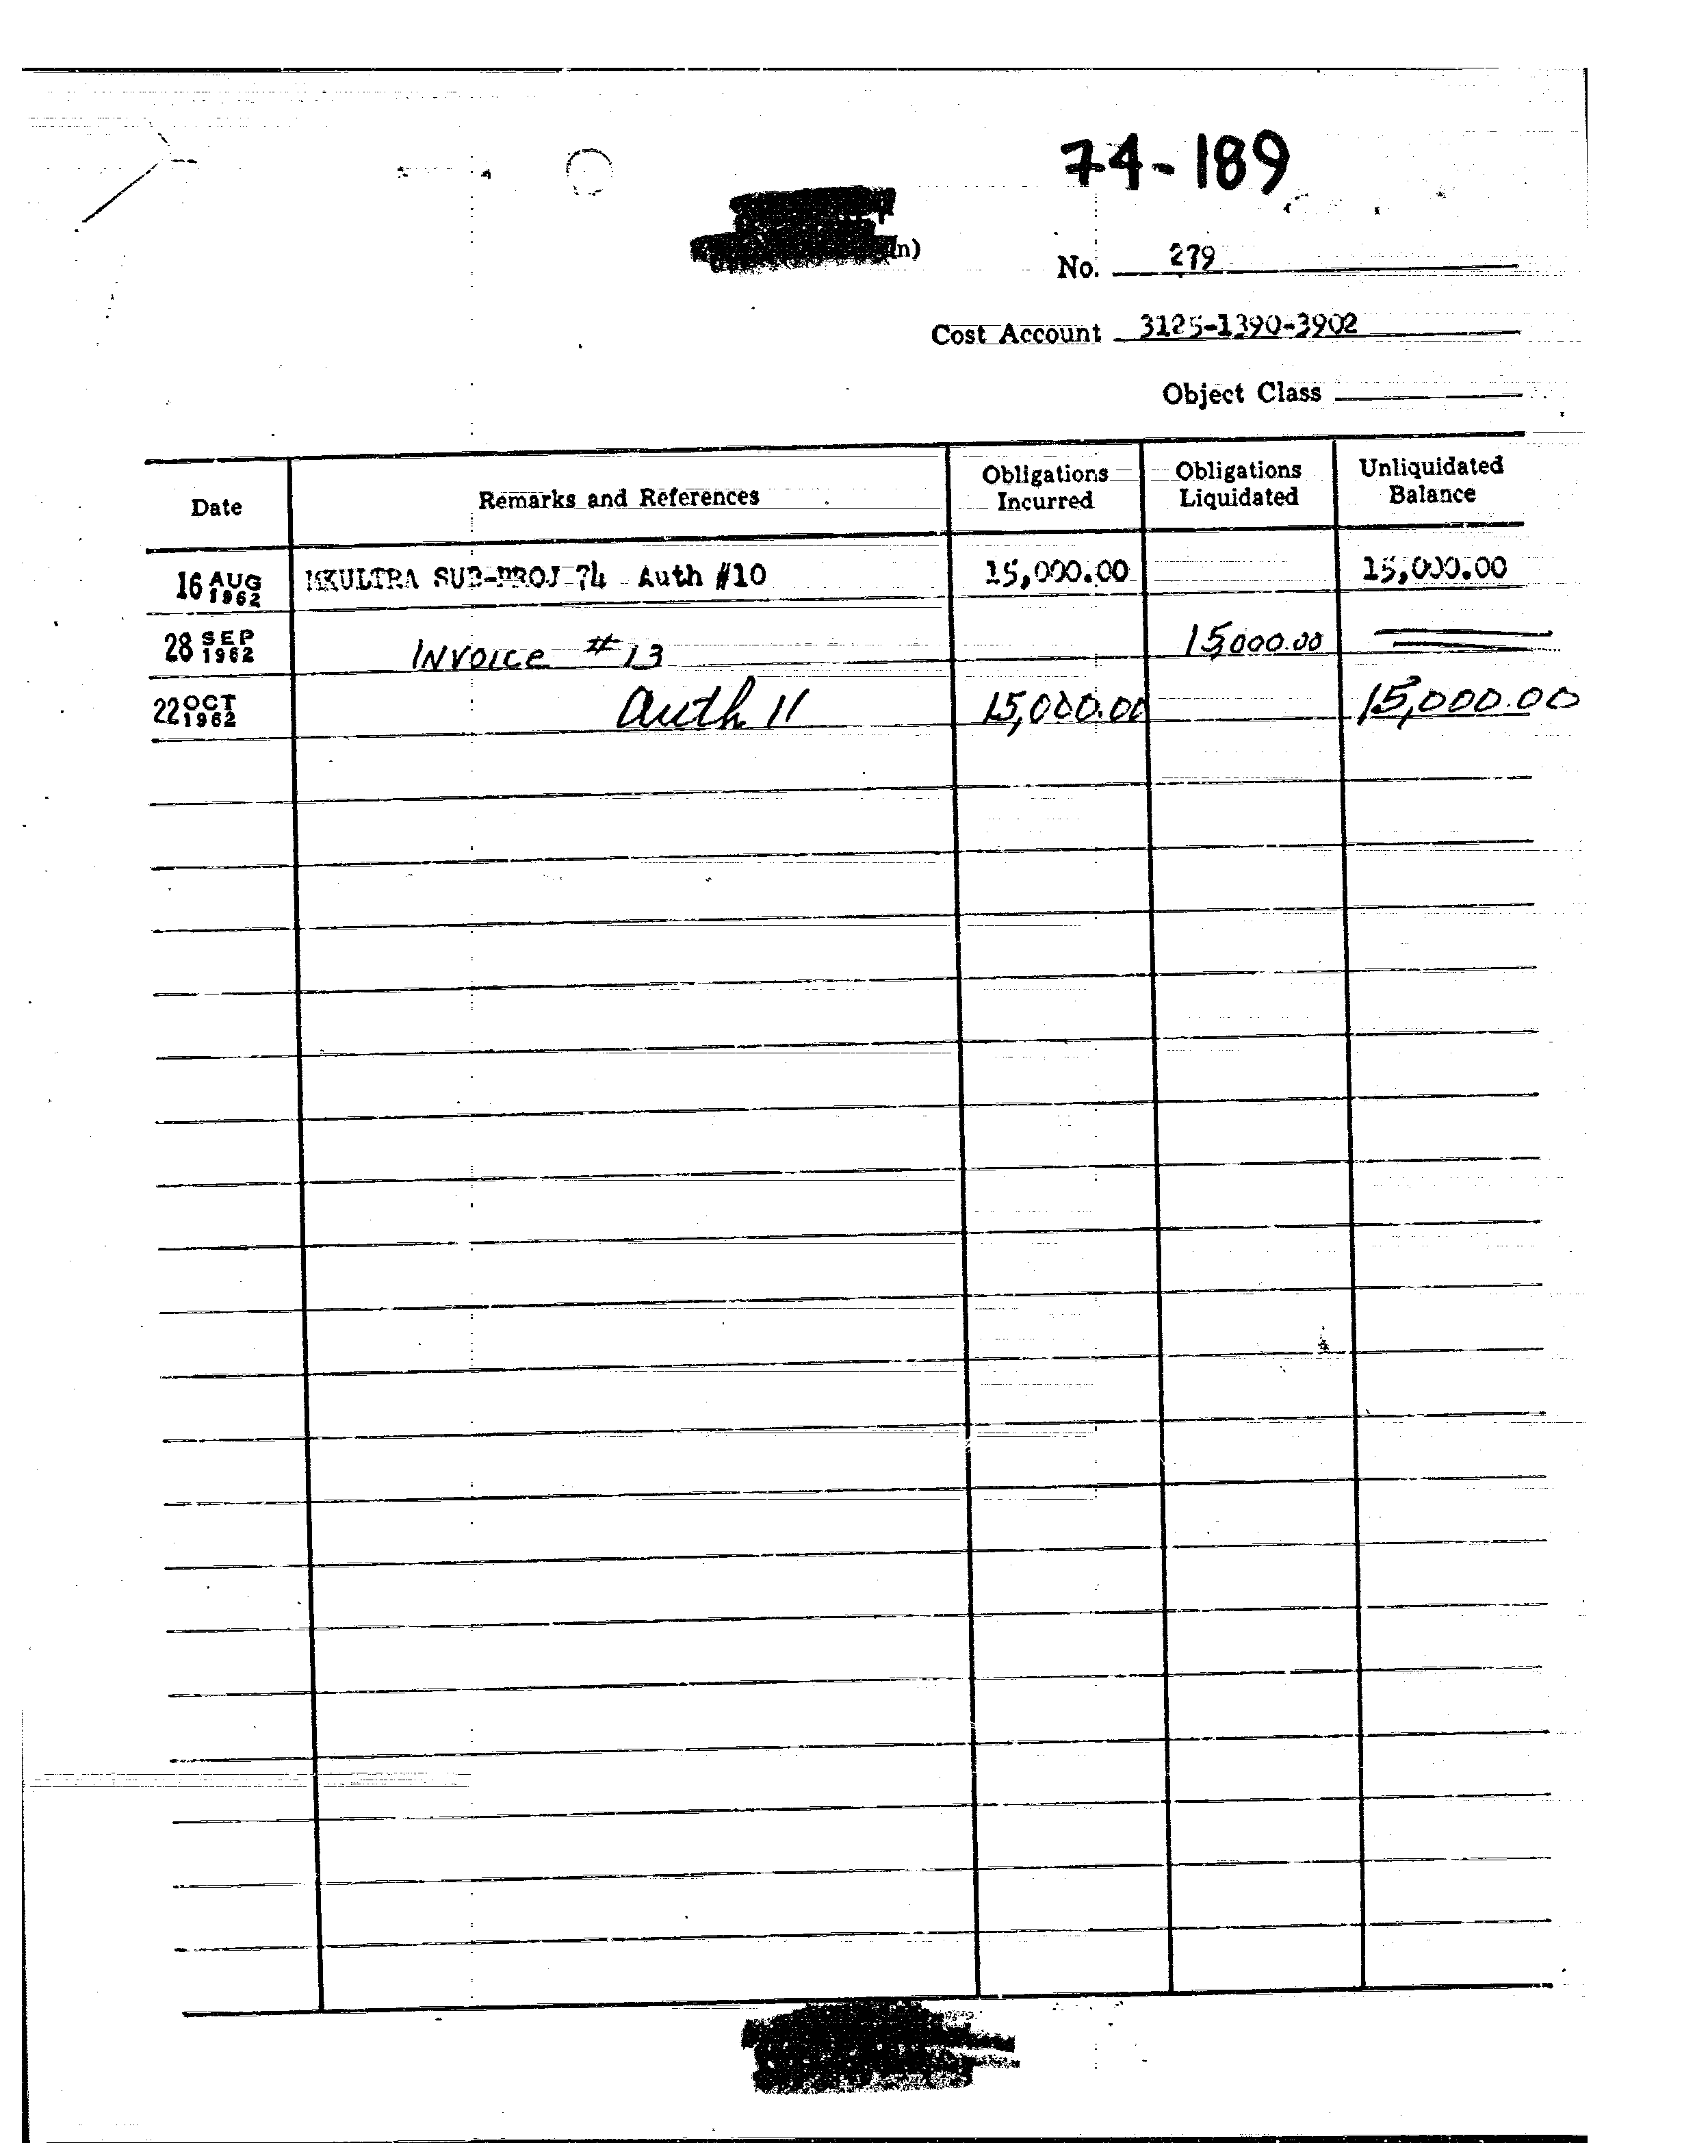 74-189
n)
No. 279
Cost Account 3125-1390-3902
Object Class
Date Remarks and References Obligations Incurred Obligations Liquidated Unliquidated Balance
16 AUG 1962 MKULTRA SUB-PROJ 74 Auth #10 15,000.00 15,000.00
28 SEP 1962 Invoice #13 15,000.00
22 OCT 1962 Auth 11 15,000.00 15,000.00